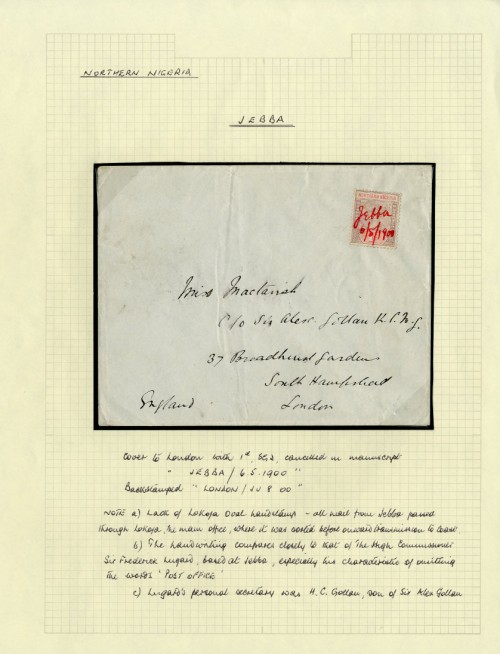 NORTHERN NIGERIA
JEBBA
Jebba
6/5/1900
Miss Mactavish
C/o Sir Alex. Gollan K.C.M.G.
37 Broadhurst Gardens
South Hampstead
England
London
Cover to London with 1d. SG.2, cancelled in manuscript
" JEBBA / 6.5.1900 "
Backstamped " LONDON / JU 8 00 "
NOTE a) Lack of Lokoja Oval handstamp - all mail from Jebba passed
through Lokoja, the main office, where it was sorted before onward transmission to coast.
b) The handwriting compares closely to that of The High Commissioner
Sir Frederick Lugard, based at Jebba, especially his characteristic of omitting
the words 'POST OFFICE'
c) Lugard's personal secretary was H.C. Gollan, son of Sir Alex Gollan